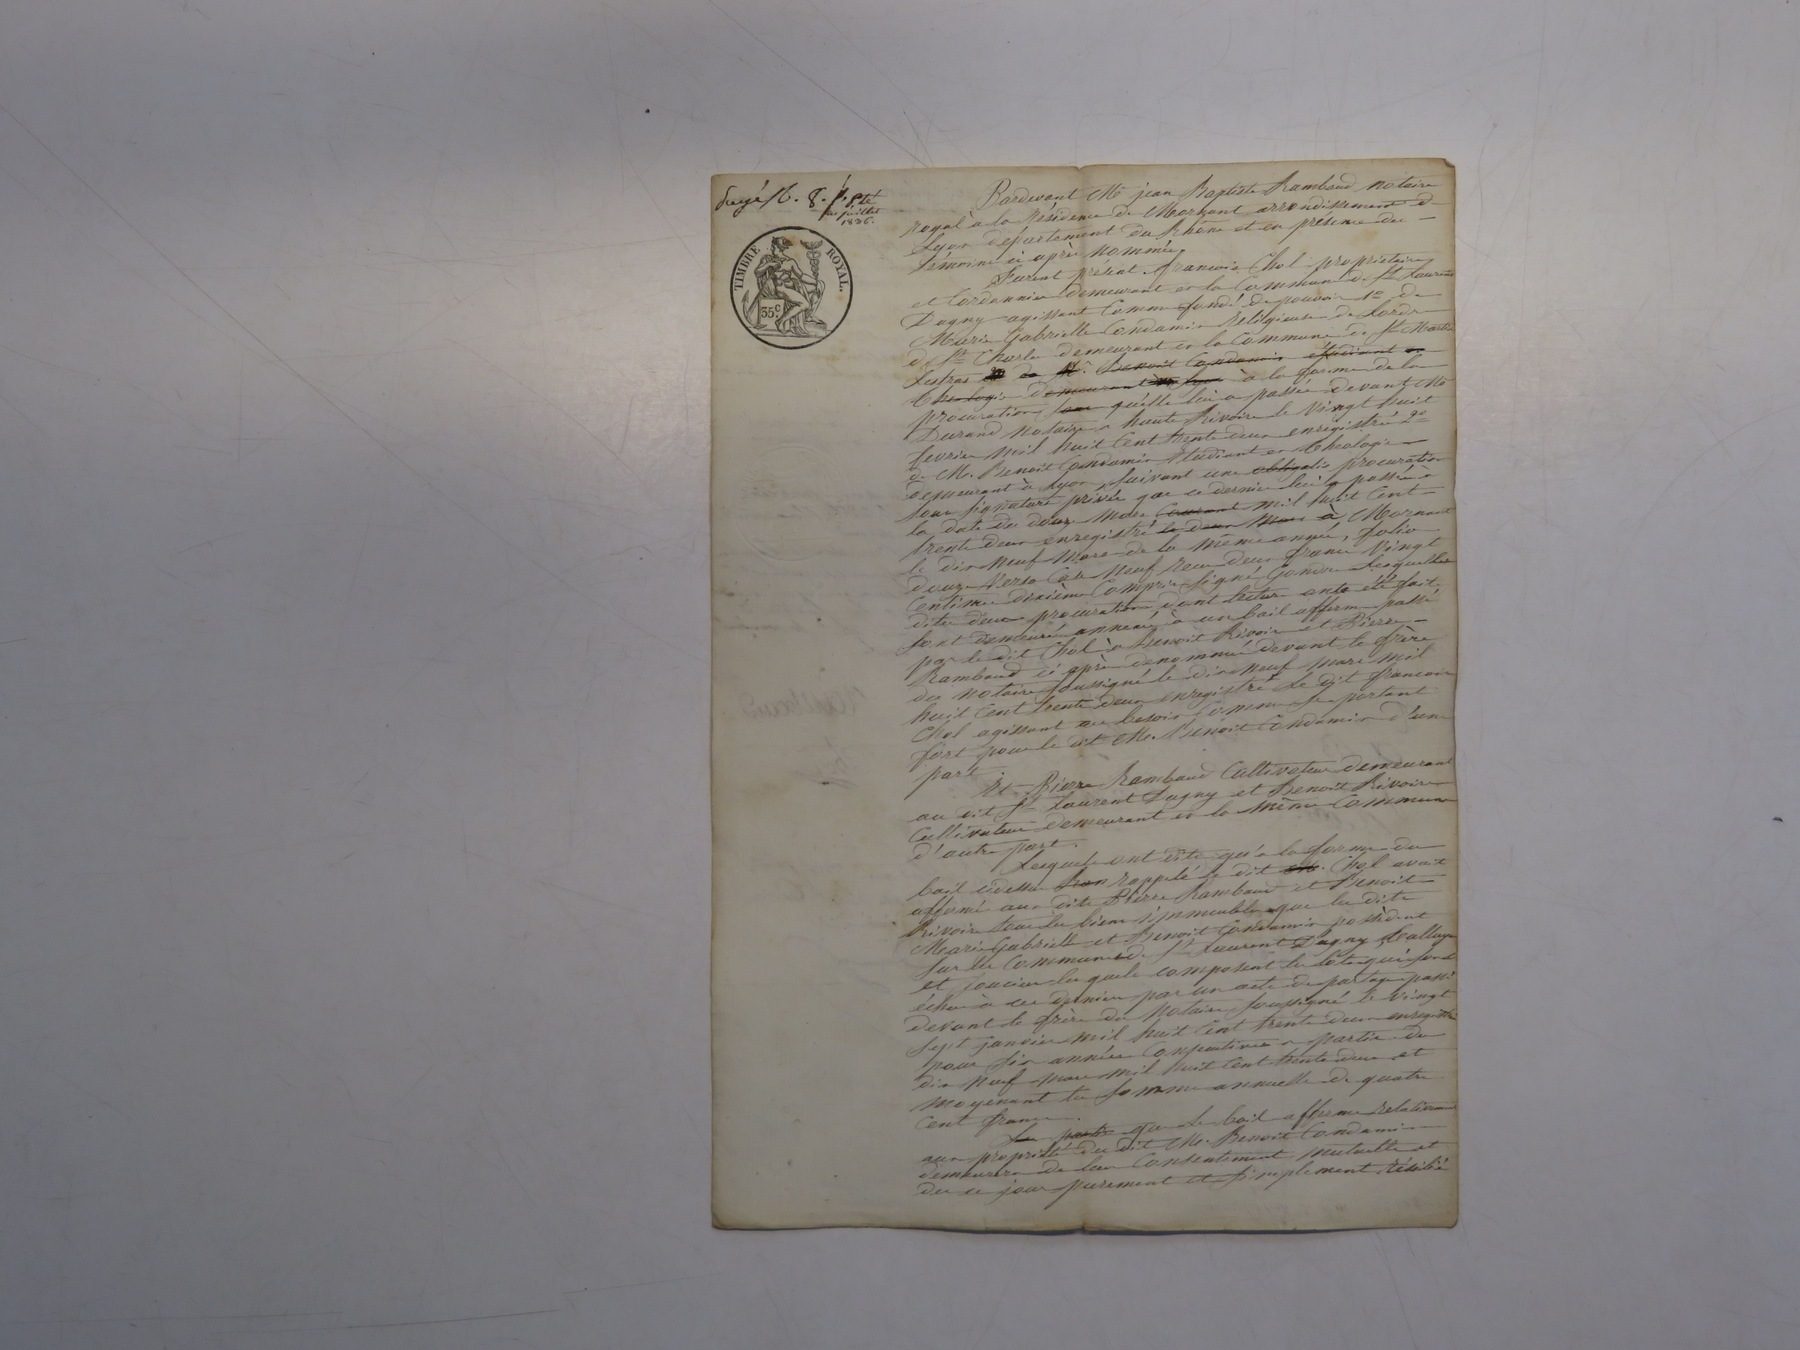 TIMBRE ROYAL.
35 c.
juillet
1836.
Pardevant Me jean Baptiste Rambaud notaire
royal à la Résidence de Mornant arrondissement de
Lyon département du Rhône et en présence des
témoins ci après nommés
furent présent francois Chol propriétaire
et Cordonnier demeurant en la Commune de St Laurent
Dagny agissant Comme fondé de pouvoir 1° de
Marie Gabrielle Condamin Religieuse de Lordre
de St Charle demeurant en la Commune de St Martin
Lestras de Mr. Benoit Condamin étudiant en
théologie demeurant à Lyon à la forme de la
procuration quelle lui a passée devant Me
Durand notaire a haute Rivoire le Vingt huit
fevrier mil huit Cent trente deux enregistré 2°
de M. Benoit Condamin Etudiant en théologie
demeurant à Lyon, suivant une obligatio procuration
sous signature privée que ce dernier lui a passée à
la date du douze Mars Courant mil huit Cent
trente deux enregistré le deux Mars à Mornant
le dix Neuf Mars de la même année, folio
douze Verso Case Neuf reçu deux francs Vingt
Centimes dixième Compris Signé Gondre Lesquelles
dites deux procurations dont lecture ont été fait
sont demeuré annexé à un bail afferme passé
par le dit Chol à Benoit Rivoire et Pierre
Rambaud ci après denommé devant le frère
du notaire soussigné le dix neuf mars mil
huit Cent trente deux enregistré le dit francois
Chol agissant au besoin Comme se portant
fort pour le dit Mr. Benoit Condamin d'une
part
Et Pierre Rambaud Cultivateur demeurant
au dit St Laurent Dagny et Benoit Rivoire
Cultivateur demeurant en la même Commune
d'autre part.
Lesquels ont dits qu'a la forme du
bail cidessus rappelé le dit Chol avait
affermé aux dits Pierre Rambaud et Benoit
Rivoire tous les biens immeubles que les dits
Marie Gabrielle et Benoit Condamin possèdent
sur les Communes de St Laurent Dagny, Talluye
et Soucieu les quels composent les lots qui sont
échus à ces derniers par un acte de partage passé
devant le frère du Notaire soussigné le vingt
sept janvier mil huit Cent trente deux enregistré
pour six années Consécutives a partir du
dix Neuf mars mil huit Cent trente deux et
moyenant la somme annuelle de quatre
Cent francs.
Les parties que le bail afferme relativement
aux propriété du dit Mr. Benoit Condamin
demeurera de leur Consentement mutuelle et
des ce jour purement et simplement résilié